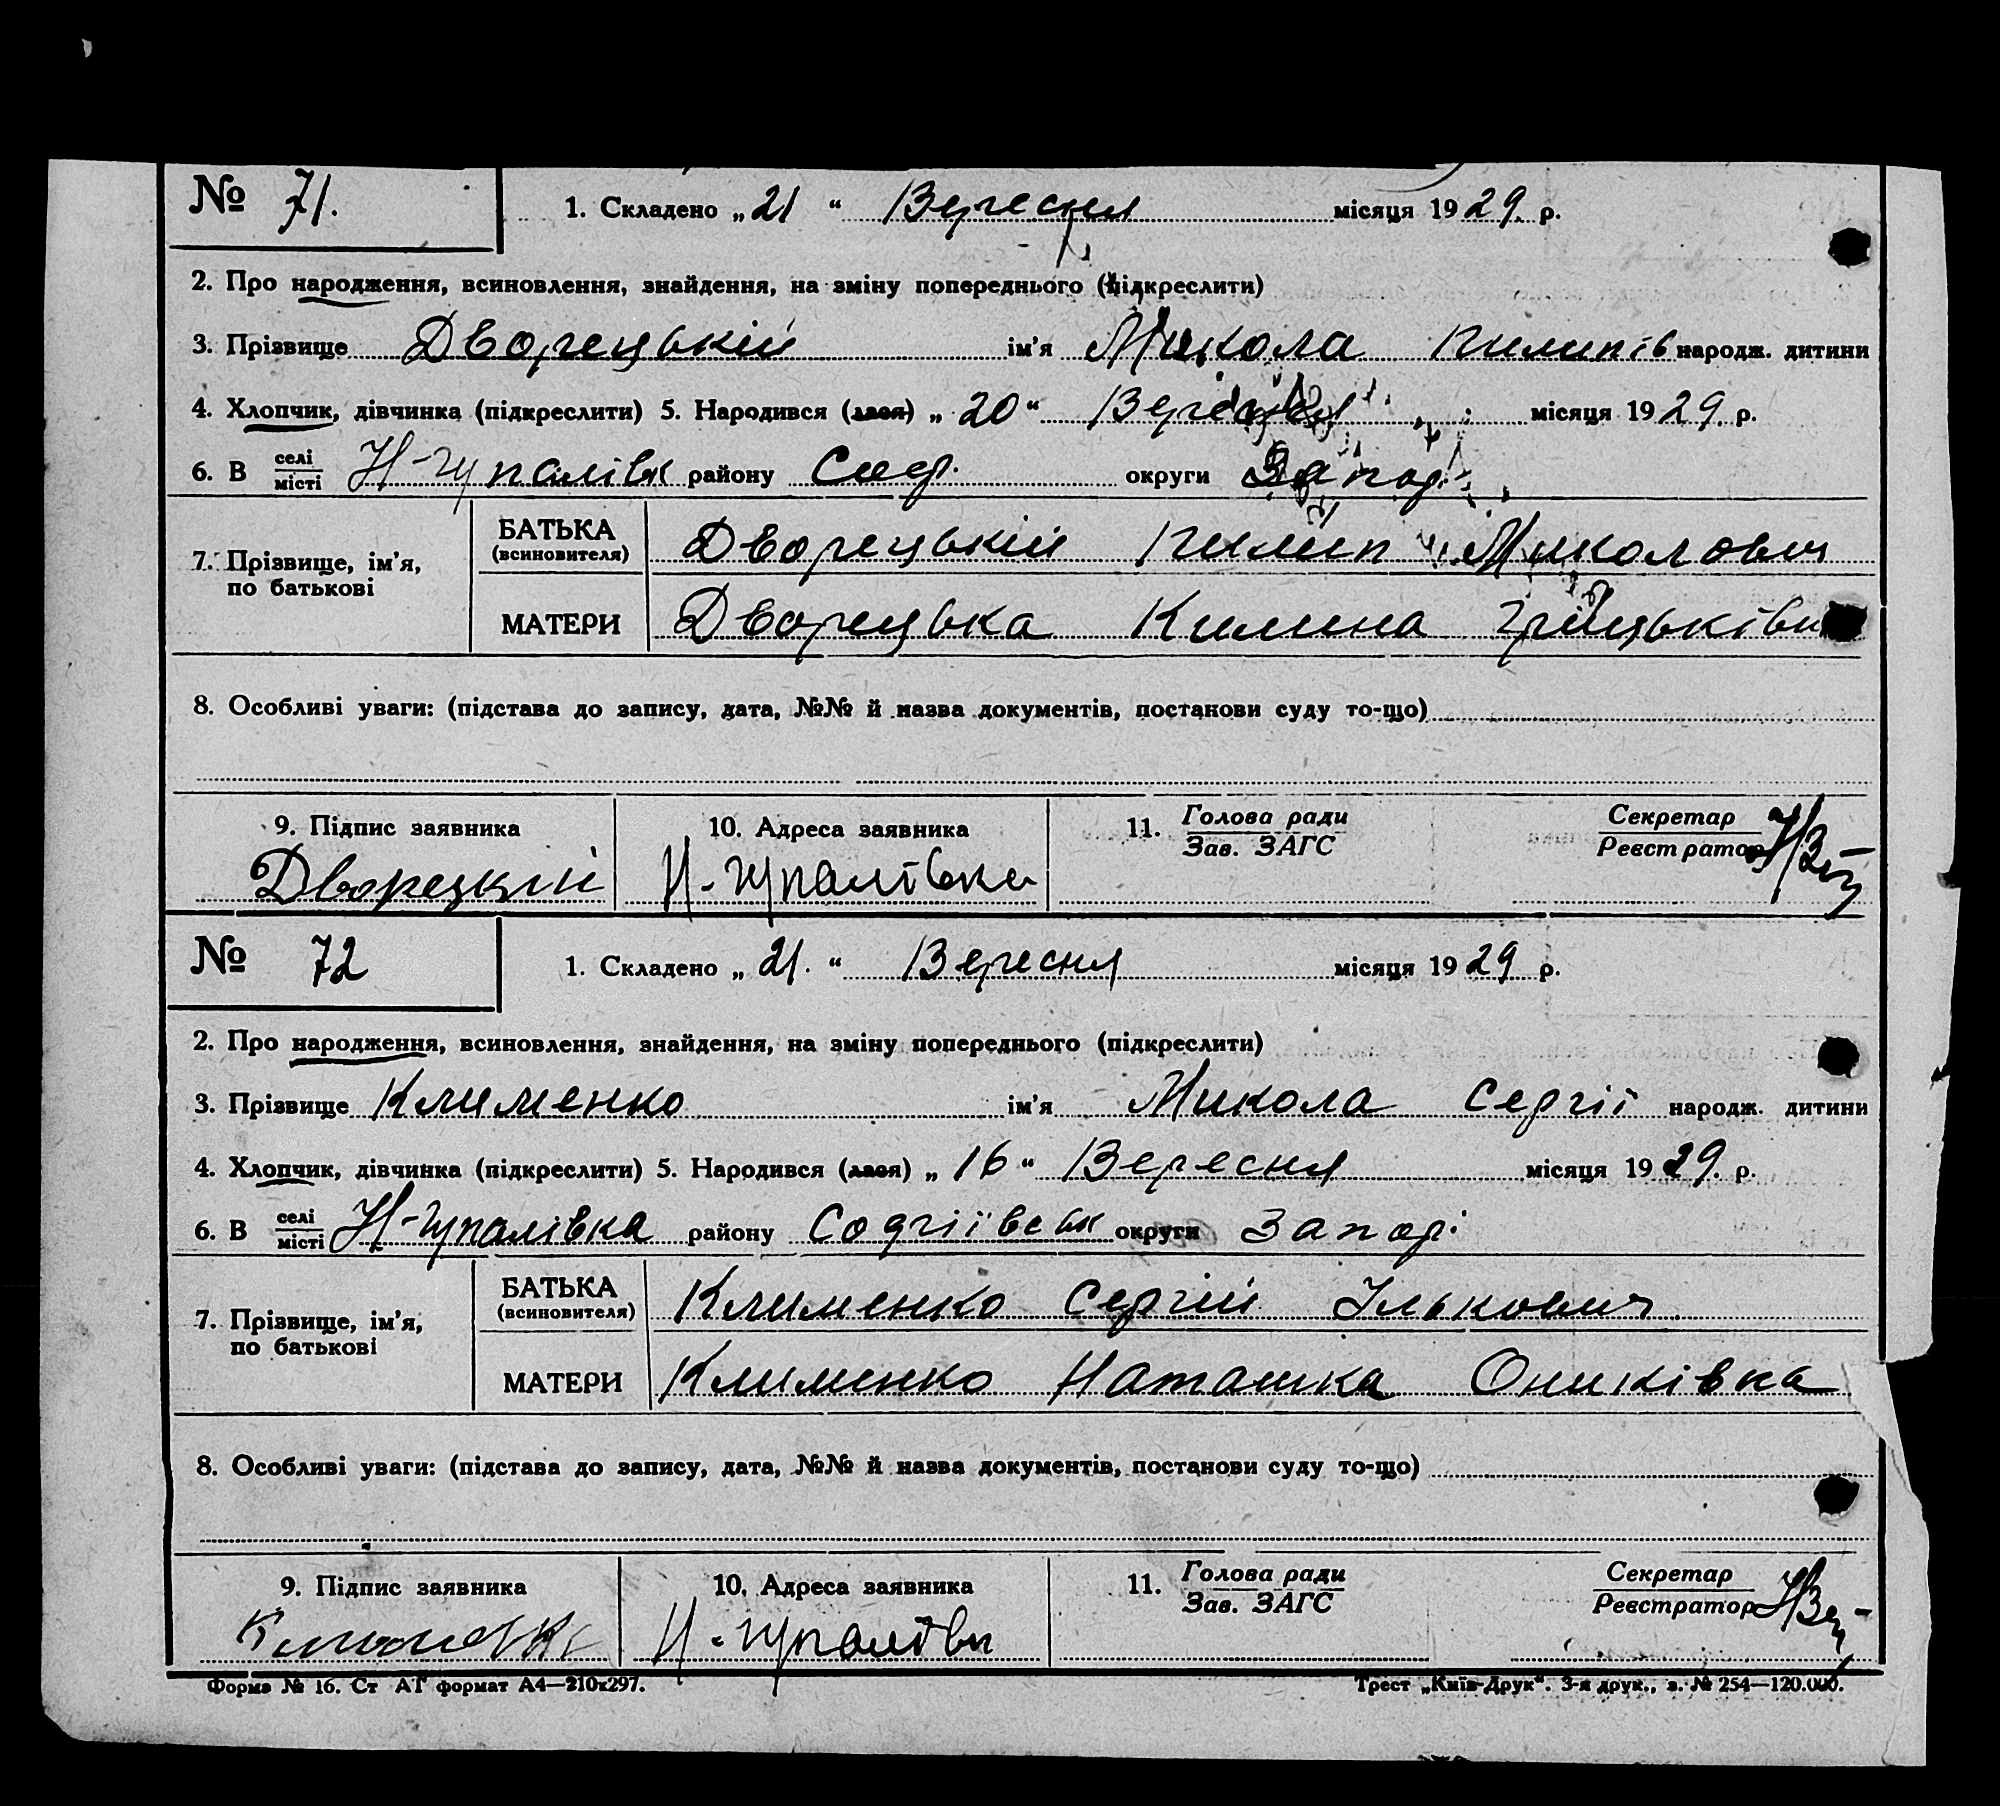 № 71. 1. Складено „21“ Вересня місяця 1929. р.
2. Про народження, всиновлення, знайдення, на зміну попереднього (підкреслити)
3. Прізвище Дворецький ім'я Микола Пилипів народж. дитини
4. Хлопчик, дівчинка (підкреслити) 5. Народився (лася) „20“ Вересня місяця 1929. р.
6. В селі/місті Н-Гупалівк району Соф. округи Запор.
7. Прізвище, ім'я, по батькові
БАТЬКА (всиновителя) Дворецький Пилип Миколович
МАТЕРИ Дворецька Килина Грицьківн
8. Особливі уваги: (підстава до запису, дата, №№ й назва документів, постанови суду то-що)
9. Підпис заявника 10. Адреса заявника 11. Голова ради/Зав. ЗАГС Секретар/Реєстратор
Дворецкий Н-Гупалівка
№ 72 1. Складено „21.“ Вересня місяця 1929 р.
2. Про народження, всиновлення, знайдення, на зміну попереднього (підкреслити)
3. Прізвище Клименко ім'я Микола Сергії народж. дитини
4. Хлопчик, дівчинка (підкреслити) 5. Народився (лася) „16“ Вересня місяця 1929. р.
6. В селі/місті Н-Гупалівка району Софіївськ округи Запор.
7. Прізвище, ім'я, по батькові
БАТЬКА (всиновителя) Клименко Сергій Ількович
МАТЕРИ Клименко Наташка Ониківна
8. Особливі уваги: (підстава до запису, дата, №№ й назва документів, постанови суду то-що)
9. Підпис заявника 10. Адреса заявника 11. Голова ради/Зав. ЗАГС Секретар/Реєстратор
Н-Гупалівк
Форма № 16. Ст АГ формат А4—210х297. Трест „Київ-Друк“. 3-я друк., з. № 254—120.000.